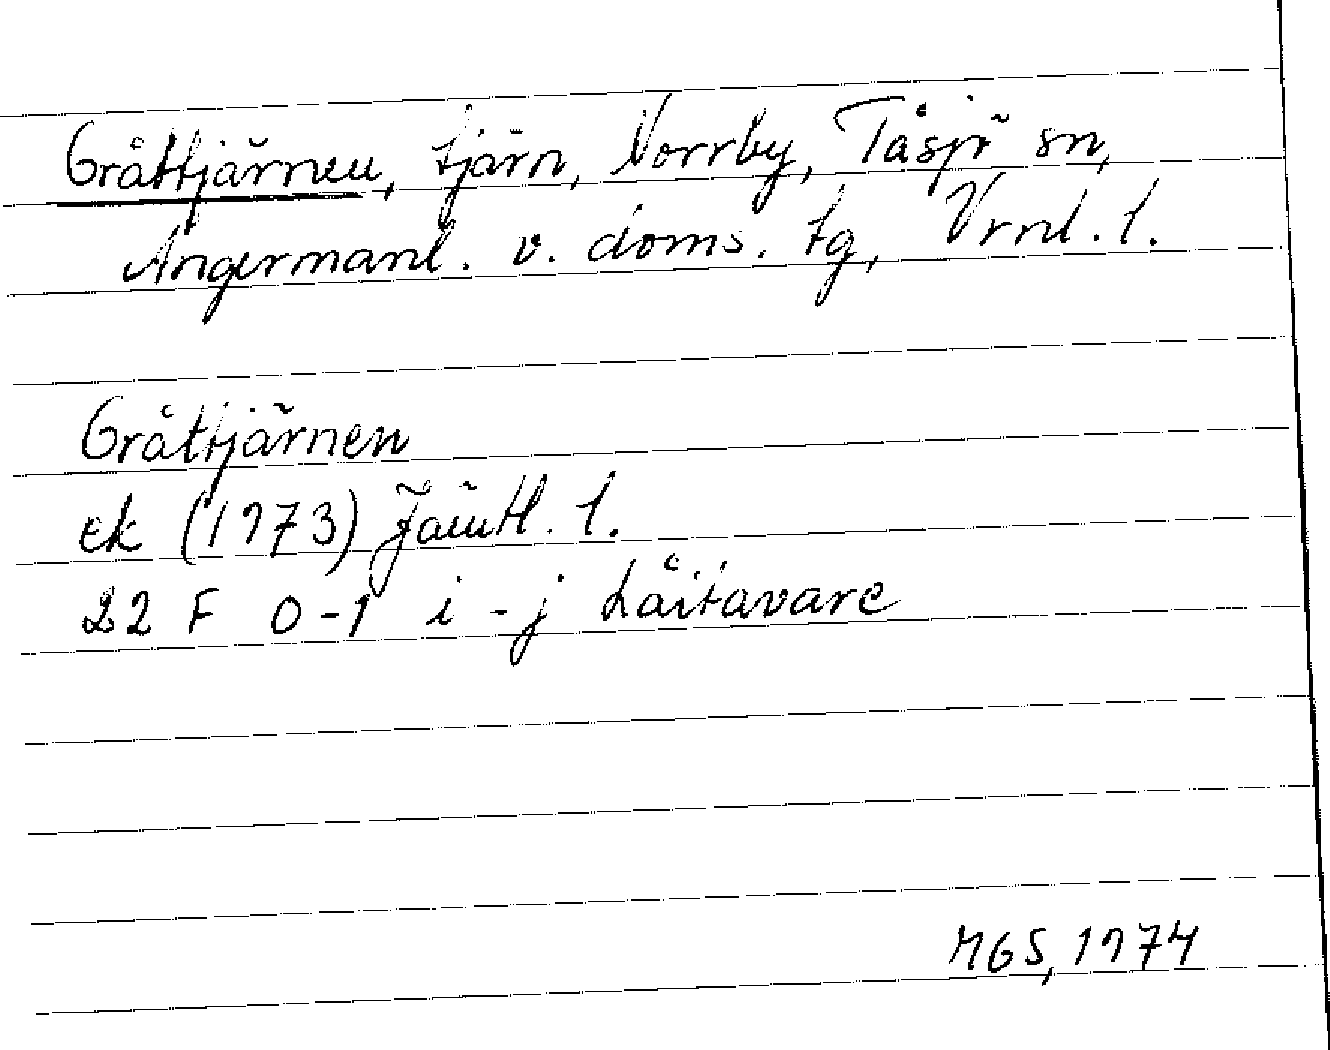 Gråttjärnen, tjärn, Norrby, Tåsjö sn,
Ångermanl. v. doms. tg, Vrnl. l.
Gråttjärnen
ek (1973) Jämtl. l.
22 F 0-1 i-j Låitavare
MGS, 1974